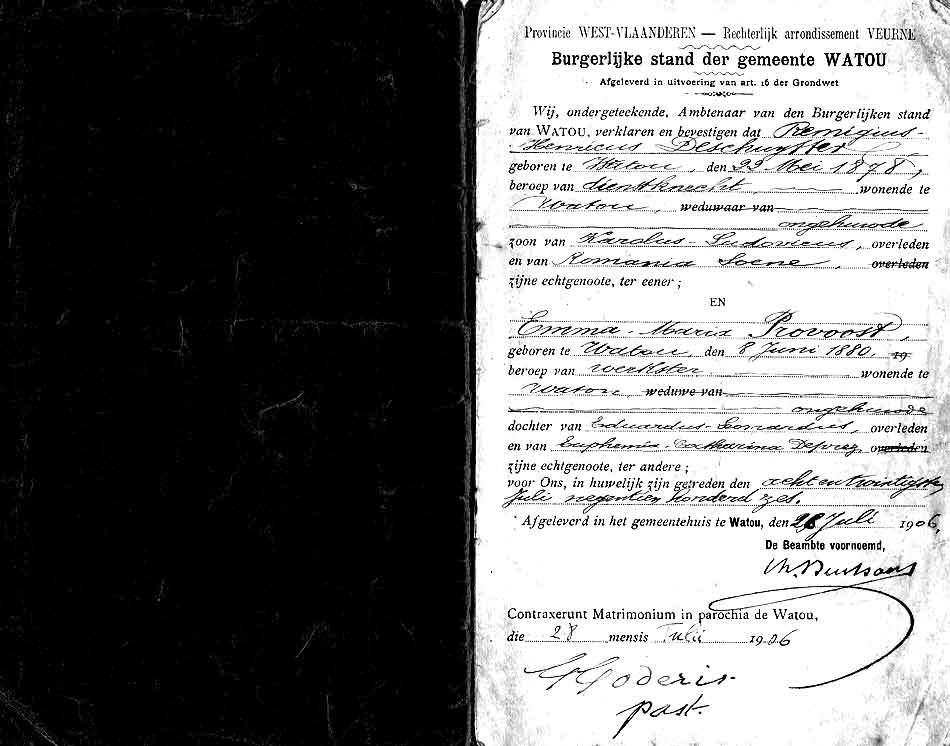 Provincie WEST-VLAANDEREN — Rechterlijk arrondissement VEURNE
Burgerlijke stand der gemeente WATOU
Afgeleverd in uitvoering van art. 16 der Grondwet
Wij, ondergeteekende, Ambtenaar van den Burgerlijken stand
van WATOU, verklaren en bevestigen dat Remigius-
Henricus Deschuytter
geboren te Watou, den 22 Mei 1878,
beroep van dienstknecht, wonende te
Watou, weduwaar van
ongehuwde
zoon van Karolus-Ludovicus, overleden
en van Romania Soene, overleden
zijne echtgenoote, ter eener ;
EN
Emma-Maria Provoost,
geboren te Watou, den 8 Juni 1880. 19
beroep van werkster wonende te
Watou weduwe van
ongehuwde
dochter van Eduardus-Leonardus, overleden
en van Euphemia-Catharina Deprez, overleden
zijne echtgenoote, ter andere ;
voor Ons, in huwelijk zijn getreden den achtentwintigsten
Juli negentien honderd zes.
Afgeleverd in het gemeentehuis te Watou, den 28 Juli 1906,
De Beambte voornoemd,
Contraxerunt Matrimonium in parochia de Watou,
die 28 mensis Julii 1906
past.